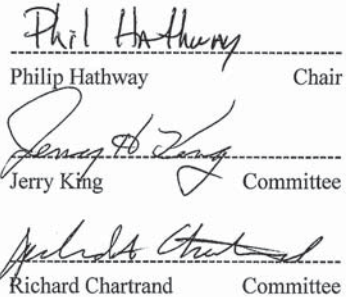 Phil Hathway
Philip Hathway Chair
Jerry H King
Jerry King Committee
Richard A Chartrand
Richard Chartrand Committee